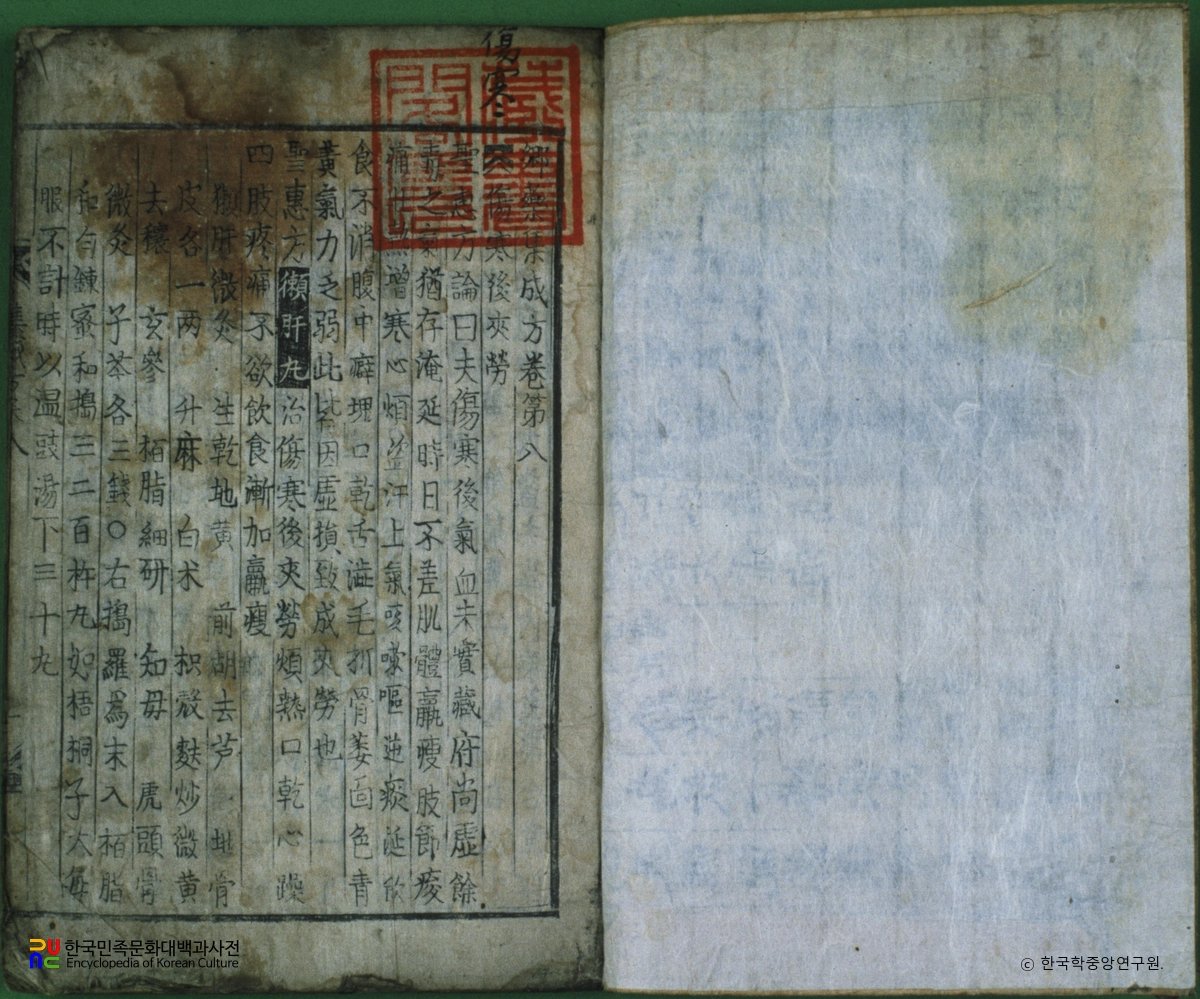 傷寒
鄉藥集成方卷第八
傷寒後夾勞
聖惠方論曰夫傷寒後氣血未實藏府尚虛餘
毒之氣猶存淹延時日不差肌體羸瘦肢節痠
痛 熱增寒心煩盜汗上氣咳嗽嘔逆痰涎飲
食不消腹中癖塊口乾舌澁毛折骨萎面色青
黃氣力乏弱此皆因虛損致成夾勞也
聖惠方獺肝丸治傷寒後夾勞煩熱口乾心躁
四肢疼痛不欲飲食漸加羸瘦
獺肝微灸 生乾地黃 前胡去芦 地骨
皮各一两 升麻 白术 枳殼麩炒微黃
去穰 玄參 栢脂細研 知母 虎頭骨
微灸 子苓各三錢○右搗羅爲末入栢脂
和勻鍊蜜和搗三二百杵丸如梧桐子大每
服不計時以温豉湯下三十丸
한국민족문화대백과사전
Encyclopedia of Korean Culture
ⓒ 한국학중앙연구원.